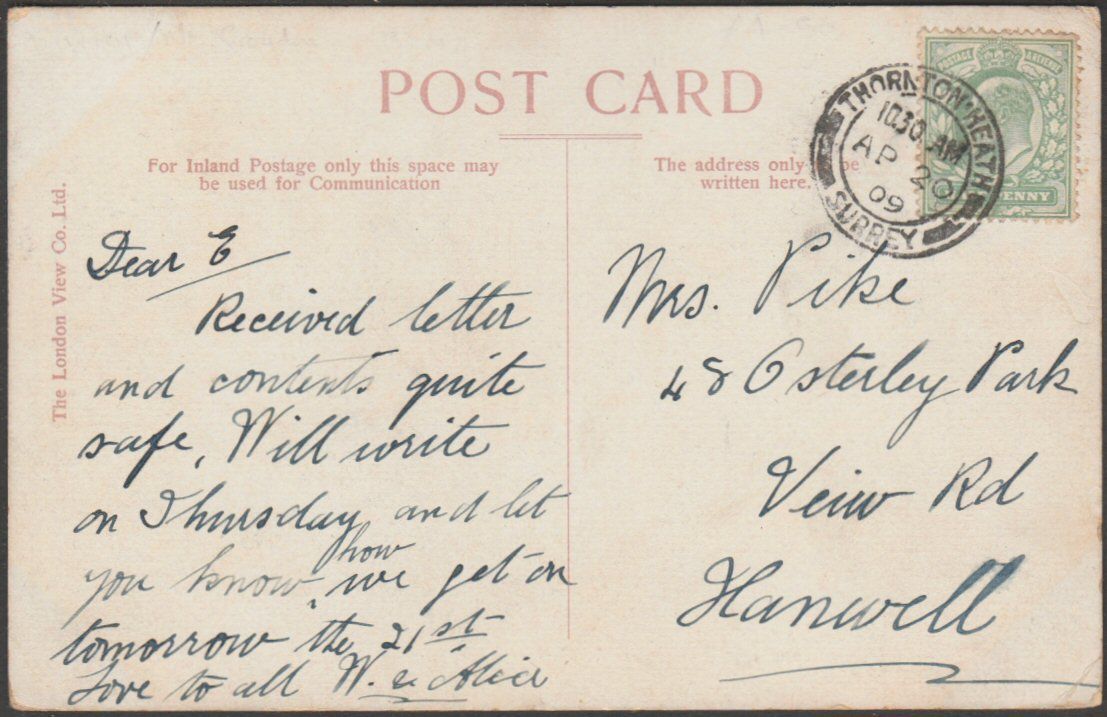 POST CARD
For Inland Postage only this space may
be used for Communication
The address only be
written here.
The London View Co. Ltd.
THORNTON HEATH
10.30 AM
AP 20
09
SURREY
POSTAGE REVENUE
PENNY
Dear E
Received letter
and contents quite
safe, Will write
on Thursday and let
you know how we get on
tomorrow the 21st
Love to all W. & Alice
Mrs. Pike
48 Osterley Park
Veiw Rd
Hanwell